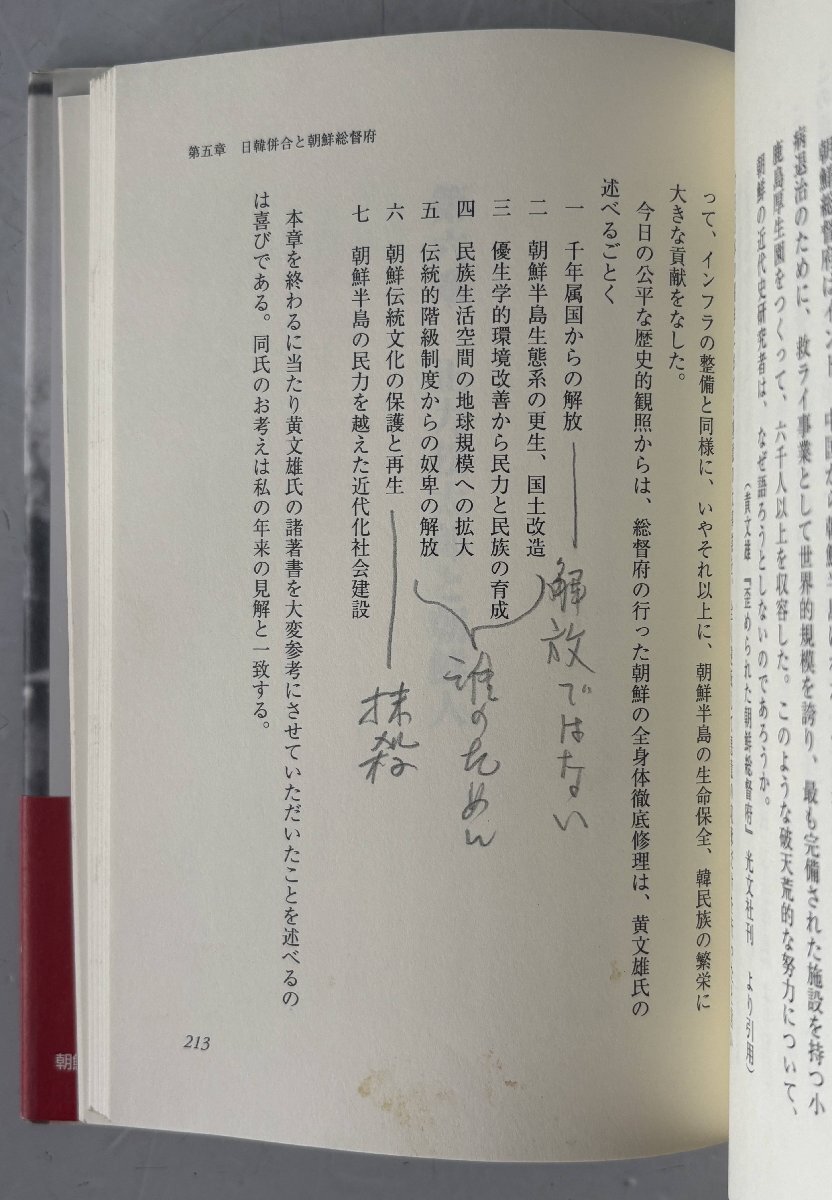 朝鮮総督府は
病退治のために、救ライ事業として世界的規模を誇り、最も完備された施設を持つ小
鹿島厚生園をつくって、六千人以上を収容した。このような破天荒的な努力について、
朝鮮の近代史研究者は、なぜ語ろうとしないのであろうか。
(黄文雄『歪められた朝鮮総督府』光文社刊 より引用)
第五章 日韓併合と朝鮮総督府
って、インフラの整備と同様に、いやそれ以上に、朝鮮半島の生命保全、韓民族の繁栄に
大きな貢献をなした。
今日の公平な歴史的観照からは、総督府の行った朝鮮の全身体徹底修理は、黄文雄氏の
述べるごとく
一 千年属国からの解放
解放ではない
二 朝鮮半島生態系の更生、国土改造
三 優生学的環境改善から民力と民族の育成
四 民族生活空間の地球規模への拡大
五 伝統的階級制度からの奴卑の解放
誰のため
六 朝鮮伝統文化の保護と再生
抹殺
七 朝鮮半島の民力を越えた近代化社会建設
本章を終わるに当たり黄文雄氏の諸著書を大変参考にさせていただいたことを述べるの
は喜びである。同氏のお考えは私の年来の見解と一致する。
213
朝鮮